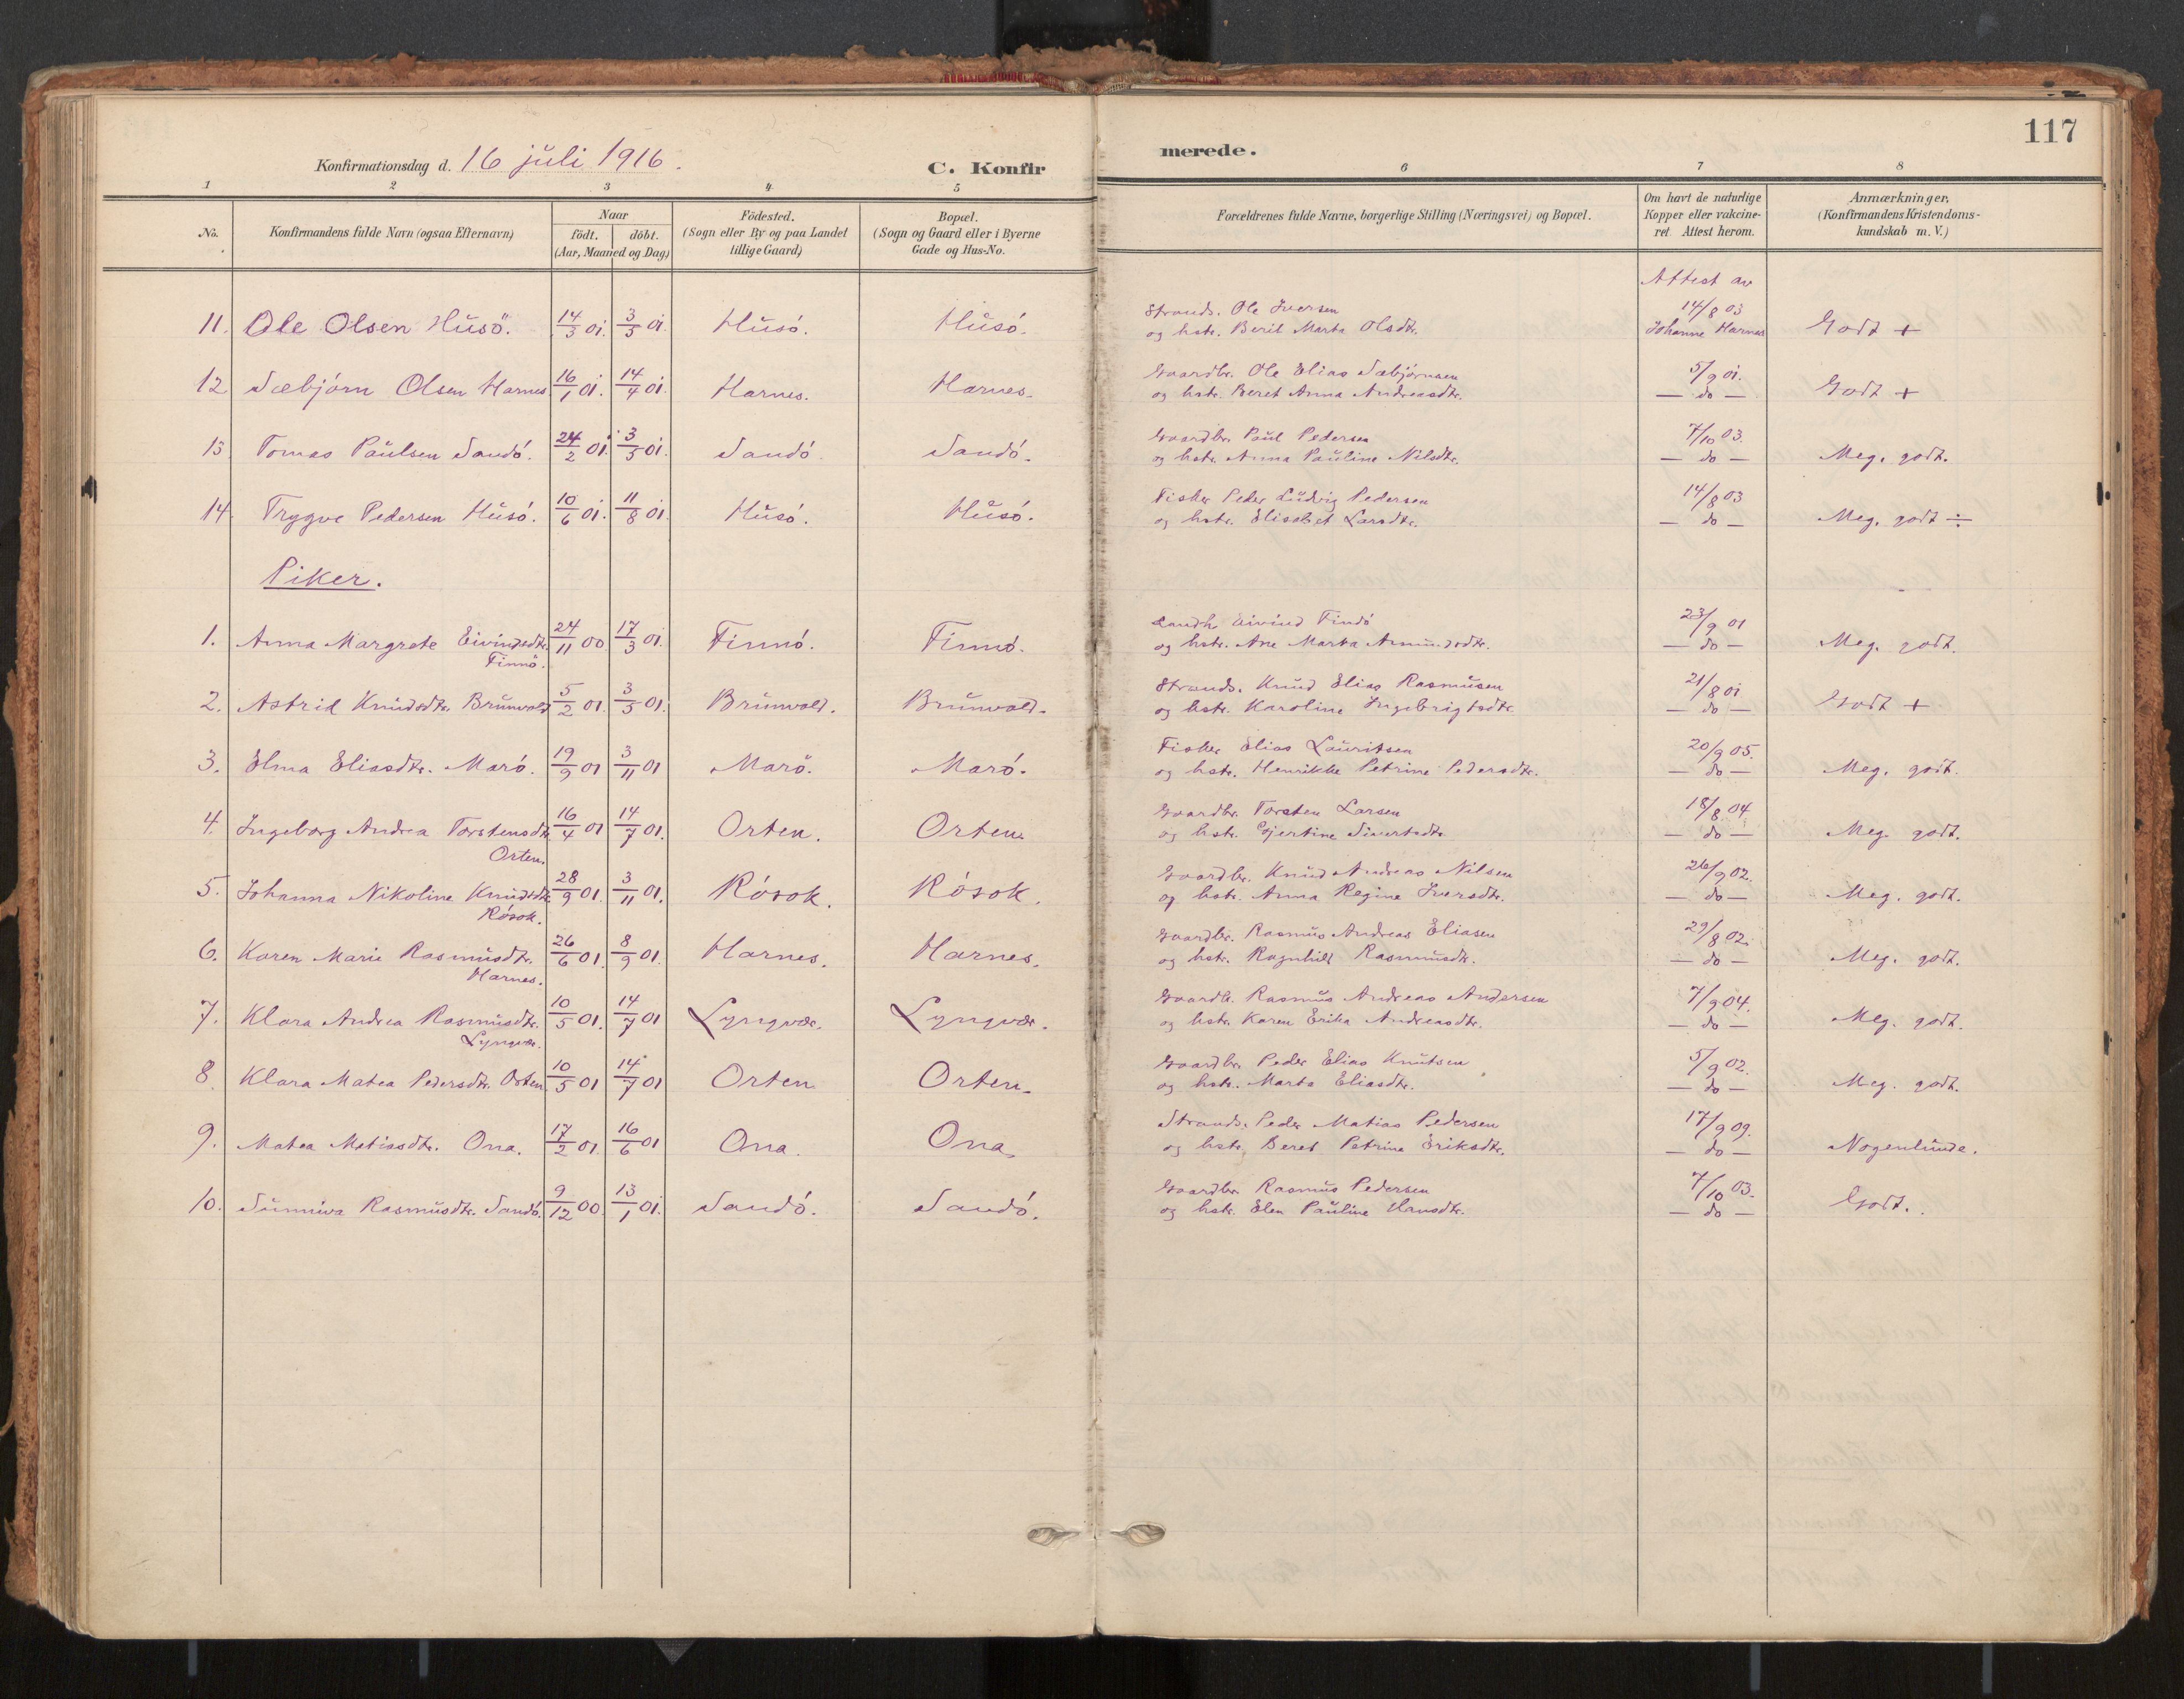 117
Konfirmationsdag d. 16 juli 1916.
C. Konfirmerede.
1 2 3 4 5 6 7 8
No.
Konfirmandens fulde Navn (ogsaa Efternavn)
Naar
födt. döbt.
(Aar, Maaned og Dag)
Födested.
(Sogn eller By og paa Landet
tillige Gaard)
Bopæl.
(Sogn og Gaard eller i Byerne
Gade og Hus-No.
Forældrenes fulde Navne, borgerlige Stilling (Næringsvei) og Bopæl.
Om havt de naturlige
Kopper eller vakcine-
ret Attest herom.
Anmærkninger,
(Konfirmandens Kristendoms-
kundskab m. V.)
Attest av
11. Ole Olsen Husö. 14/3 01. 3/5 01. Husó. Husó. Strands. Ole Iversen 14/8 03
og hstr. Berit Marta Olsdtr. Johanne Harnes Godt +
12 Sæbjörn Olsen Harnes 16/1 01. 14/4 01. Harnes. Harnes. Gaardbr. Ole Elias Sæbjörnsen 5/9 01.
og hstr. Beret Anna Andreasdtr. — do — Godt +
13 Tomas Paulsen Sandó. 24/2 01. 3/5 01. Sandó Sandó. Gaardbr. Paul Pedersen 7/10 03.
og hstr. Anna Pauline Nilsdtr. — do — Meg. godt.
14. Trygve Pedersen Husó. 10/6 01. 11/8 01 Husó. Husó. Fisker Peder Ludvig Pedersen 14/8 03
og hstr. Elisabet Larsdtr. — do — Meg. godt ÷
Piker.
1. Anna Margrete Eivindsdtr. 24/11 00 17/3 01. Finnó. Finnó. Landh. Eivind Findó 23/9 01
Finnö. og hstr. Ane Marta Amundsdtr. — do — Meg. godt.
2. Astrid Knudsdtr. Brunvold 5/2 01. 3/5 01. Brunvold. Brunvold. Strands. Knud Elias Rasmusen 21/8 01
og hstr. Karoline Ingebrigtsdtr. — do — Godt +
3. Elma Eliasdtr. Maró. 19/9 01 3/11 01 Maró. Maró. Fisker Elias Lauritsen 20/9 05.
og hstr. Henrikke Petrine Pedersdtr. — do — Meg. godt.
4. Ingeborg Andrea Torstensdtr. 16/4 01 14/7 01. Orten. Orten. Gaardbr. Torsten Larsen 18/8 04.
Orten. og hstr. Gjertine Sivertsdtr. — do — Meg. godt.
5. Johanna Nikoline Knudsdtr. 28/9 01. 3/11 01. Rósok. Rósok. Gaardbr. Knud Andreas Nilsen 26/9 02.
Rósok. og hstr. Anna Regine Iversdtr. — do — Meg. godt.
6. Karen Marie Rasmusdtr. 26/6 01. 8/9 01. Harnes. Harnes. Gaardbr. Rasmus Andreas Eliasen 29/8 02.
Harnes. og hstr. Ragnhild Rasmusdtr. — do — Meg. godt.
7. Klara Andrea Rasmusdtr. 10/5 01. 14/7 01 Lyngvær. Lyngvær. Gaardb. Rasmus Andreas Andersen 7/9 04.
Lyngvær. og hstr. Karen Erika Andreasdtr. — do — Meg. godt.
8. Klara Matea Pedersdtr. Orten 10/5 01 14/7 01 Orten Orten. Gaardbr. Peder Elias Knutsen 5/9 02.
og hstr. Marta Eliasdtr. — do — Meg. godt.
9. Matea Matiasdtr. Ona. 17/2 01. 16/6 01 Ona. Ona. Strands. Peder Matias Pedersen 17/9 09.
og hstr. Beret Petrine Eriksdtr. — do — Nogenlunde.
10. Sunniva Rasmusdtr. Sandó. 9/12 00. 13/1 01. Sandó. Sandó. Gaardbr. Rasmus Pedersen 7/10 03.
og hstr. Elen Pauline Hansdtr. — do — Godt.